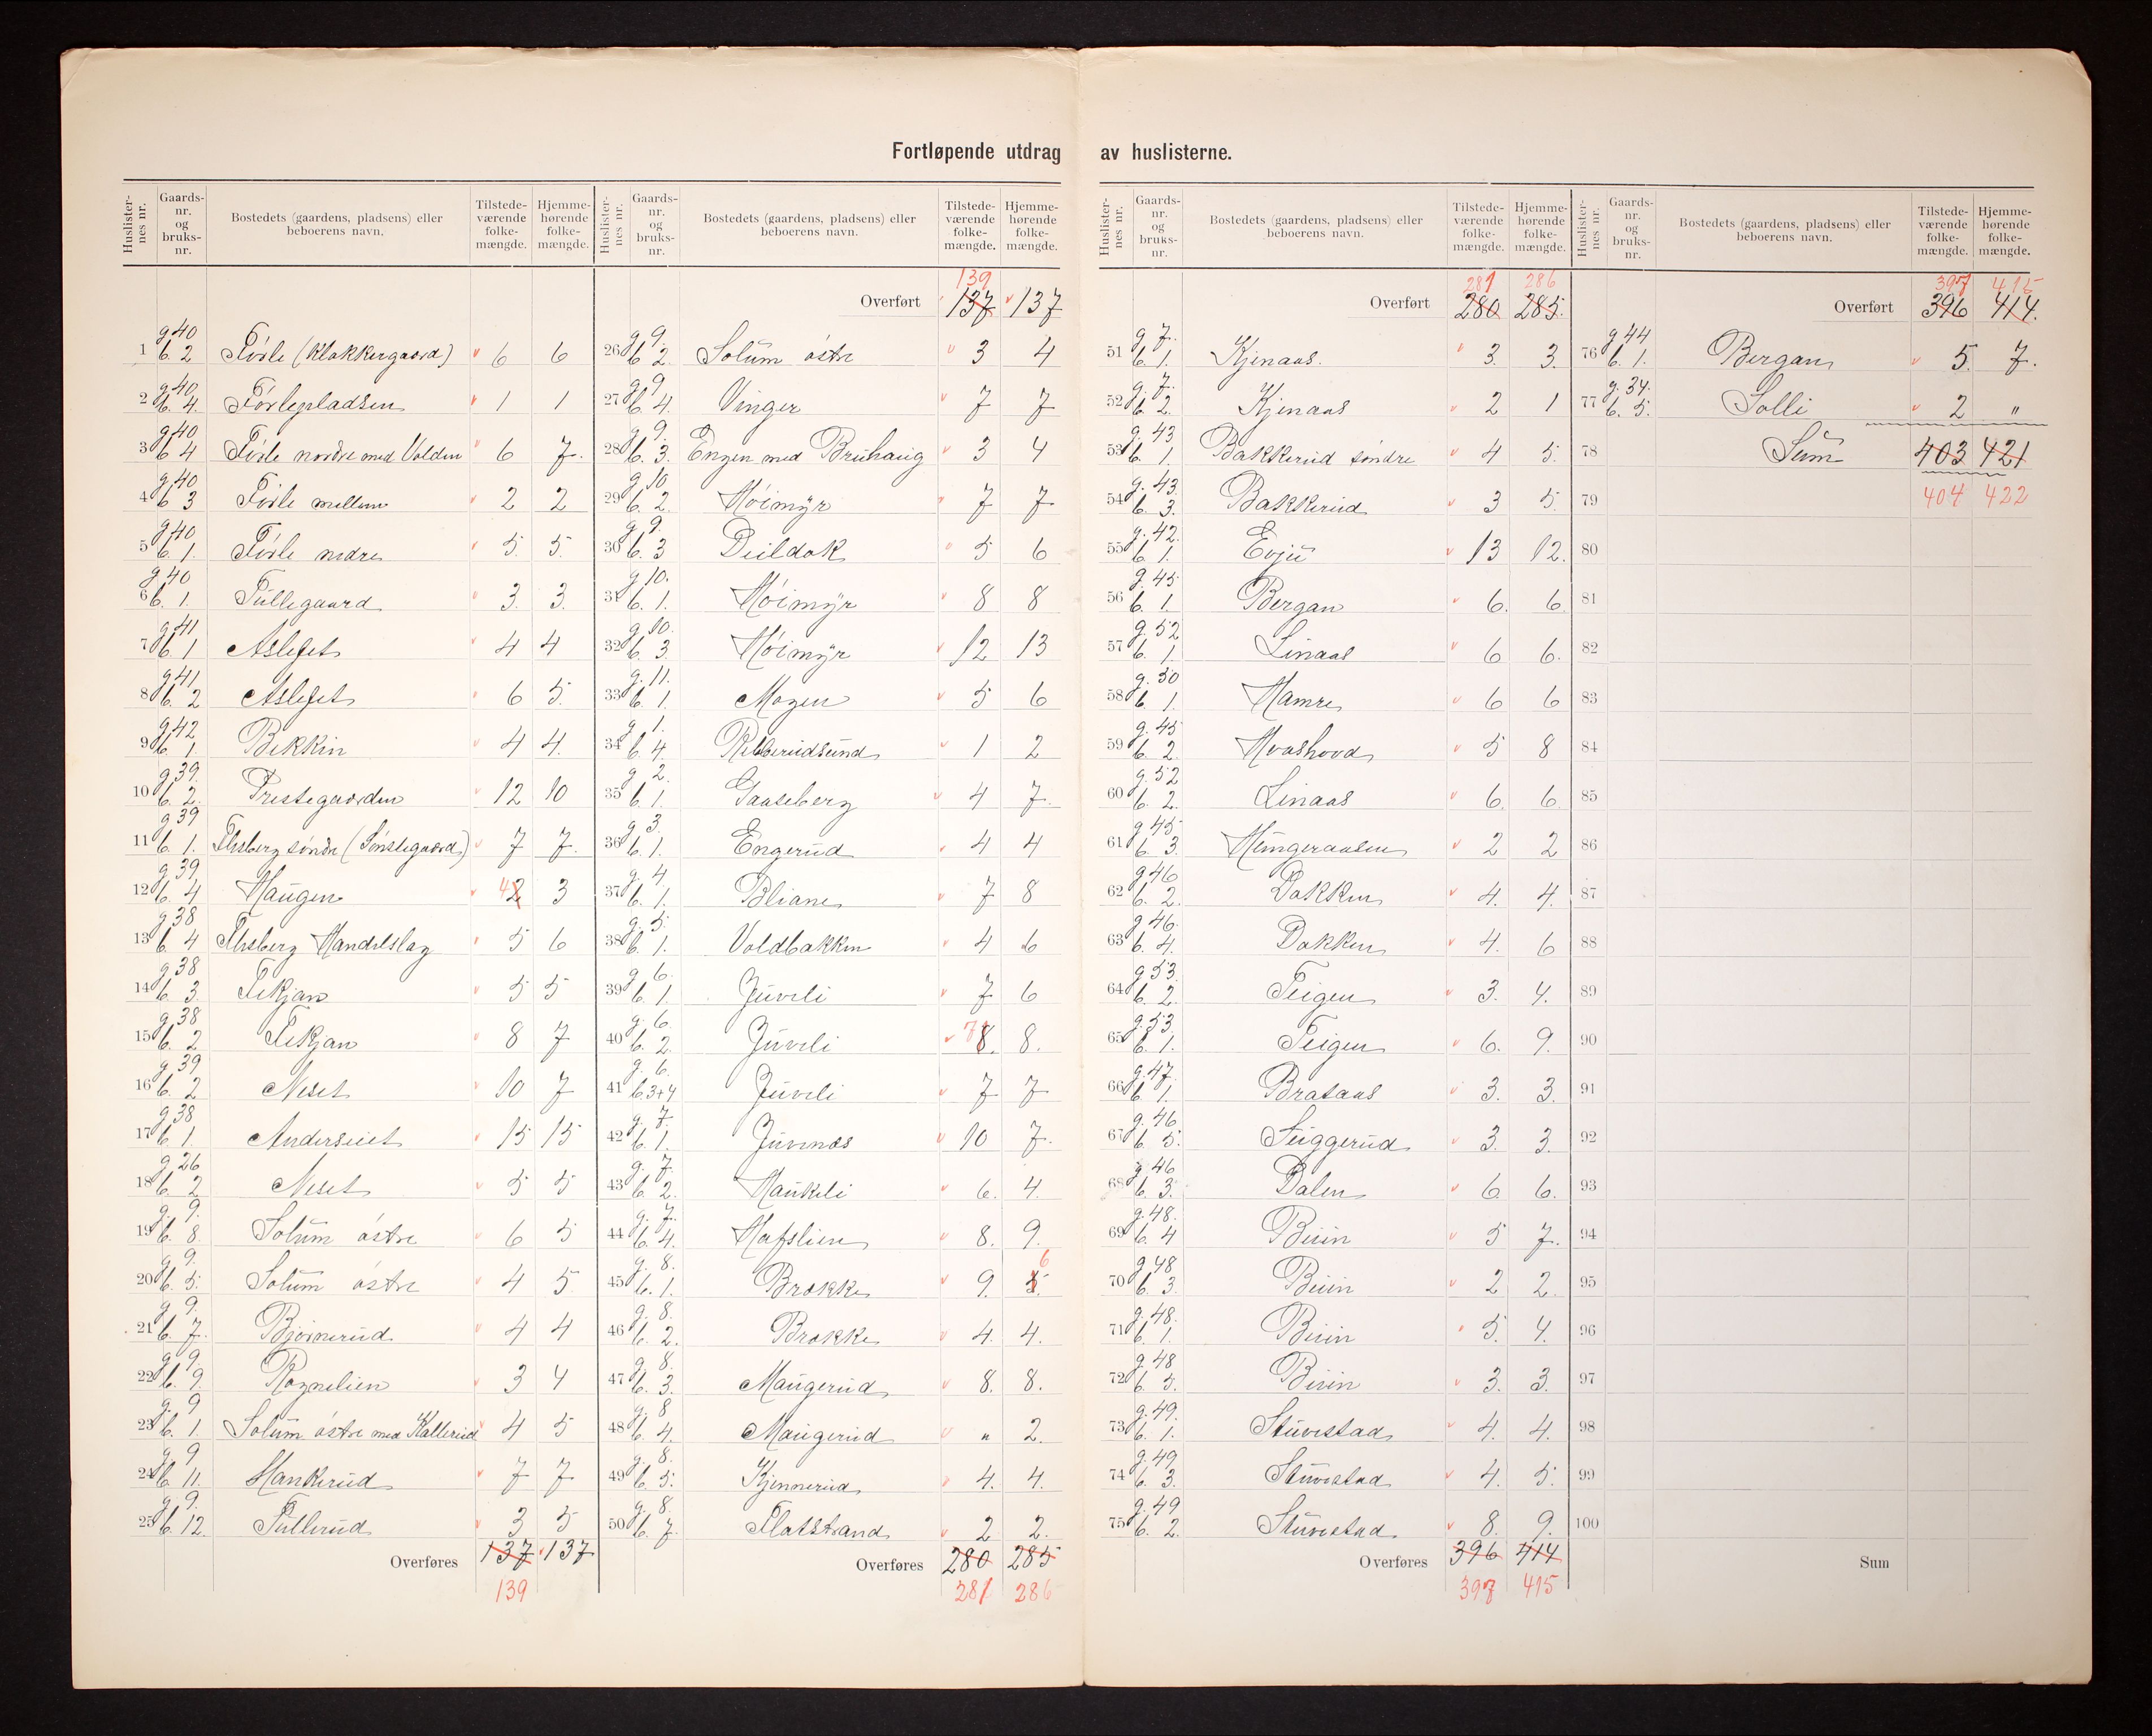 Fortløpende utdrag av huslisterne.
Huslisternes nr. Gaards-nr. og bruks-nr. Bostedets (gaardens, pladsens) eller beboerens navn. Tilstede-værende folke-mængde. Hjemme-hørende folke-mængde.
1 g 40 b. 2 Følle (Klokkergaard) 6 6
2 g 40 b. 4. Føllepladsen 1 1
3 g 40 b 4 Følle nordre med Volden 6 7.
4 g 40 b 3 Følle mellem 2 2
5 g 40 b. 1. Følle nedre 5. 5.
6 g 40 b. 1. Tüllegaard 3. 3.
7 g 41 b. 1 Aslefet 4 4
8 g 41. b. 2 Aslefet 6 5.
9 g 42 b. 1. Bekkin 4 4.
10 g 39. b. 2. Prestegaarden 12 10
11 g 39 b. 1. Flesberg søndre (Sønstegaard) 7 7.
12 g 39, b. 4 Haugen 4 2 3
13 g 38 b. 4 Flesberg Handelslag 5 6
14 g 38 b. 3. Lekjan 5 5
15 g. 38 b. 2 Lekjan 8 7
16 g 39 b. 2 Neset 10 7
17 g 38 b. 1. Anderseiet 15 15
18 g 26 b. 2 Neset 5 5
19 g. 9. b. 8. Solüm østre 6 5
20 g 9. b. 5. Solüm østre 4 5.
21 g 9. b. 7. Bjørnerüd 4 4
22 g 9. b. 9. Rognelien 3 4
23 g. 9 b. 1. Solüm østre med Kallerüd 4 5
24 g 9 b. 11. Hankerüd 7 7
25 g 9. b. 12. Tüllerüd 3 5
Overføres 137 137
139
139
Overført 137 137
26 g 9. b. 2. Solüm østre 3 4
27 g 9 b. 4. Vinger 7 7
28 g 9. b. 3. Engen med Brühaug 3 4
29 g 10 b. 2. Høimyr 7 7
30 g 9. b. 3 Deildok 5 6
31 g 10. b. 1. Høimyr 8 8
32 g 10. b. 3. Høimyr 12 13
33 g. 11. b. 1. Mogen 5 6
34 g 1. b. 4. Rebberüdsünd 1 2
35 g 2. b. 1. Gaaseberg 4 7.
36 g 3. b. 1. Engerüd 4 4
37 g. 4 b. 1. Bliane 7 8
38 g. 5. b. 1. Voldbakken 4 6
39 g 6. b. 1. Jüveli 7 6
40 g. 6. b. 2. Jüveli 7 8. 8.
41 g. 6. b. 3+4 Jüveli 7 7
42 g. 7. b. 1. Jüvenes 10 7.
43 g. 7. b. 2. Haukeli 6. 4.
44 g. 7. b. 4. Hafslien 8. 9.
45 g. 8. b. 1. Brekke 9. 5. 6
46 g. 8. b. 2. Brekke 4. 4.
47 g. 8. b. 3. Maugerüd 8. 8.
48 g. 8 b. 4. Maugerüd " 2.
49 g. 8. b. 5. Kjennerüd 4. 4.
50 g. 8. b. 7. Flatstrand 2 2.
Overføres 280 285
281 286
281 286
Overført 280 285.
51 g 7. b. 1. Kjenaas. 3. 3.
52 g. 7. b. 2. Kjenaas 2 1
53 g. 43 b. 1. Bakkerüd søndre 4 5.
54 g. 43. b. 3. Bakkerüd 3 5.
55 g. 42. b. 1. Evjü 13 12.
56 g. 45 b. 1. Bergan 6. 6.
57 g. 52 b. 1. Linaas 6 6.
58 g. 50 b. 1. Hamre 6 6
59 g. 45 b. 2. Hvashovd 5 8
60 g. 52 b. 2. Linaas 6. 6.
61 g 45 b. 3. Hüngeraasen 2 2
62 g 46 b. 2. Dokken 4. 4.
63 g 46. b. 4. Dokken 4. 6
64 g 53. b. 2. Teigen 3. 4.
65 g. 53. b. 1. Teigen 6. 9.
66 g. 47. b. 1. Brataas 3. 3.
67 g. 46 b. 5. Seiggerüd 3. 3.
68 g. 46 b. 3. Dalen 6. 6.
69 g. 48. b. 4 Büin 5 7.
70 g 48 b. 3. Büin 2 2.
71 g. 48. b. 1. Büin 5. 4.
72 g. 48 b. 5. Büin 3. 3.
73 g. 49. b. 1. Stüvestad 4. 4.
74 g. 49 b. 3. Stüvestad 4. 5.
75 g. 49 b. 2. Stüvestad 8. 9.
Overføres 396 414
397 415
397 415
Overført 396 414.
76 g 44 b. 1. Bergan 5. 7.
77 g. 34. b. 5. Solli 2 "
78 Süm 403 421
79 404 422
80
81
82
83
84
85
86
87
88
89
90
91
92
93
94
95
96
97
98
99
100
Sum